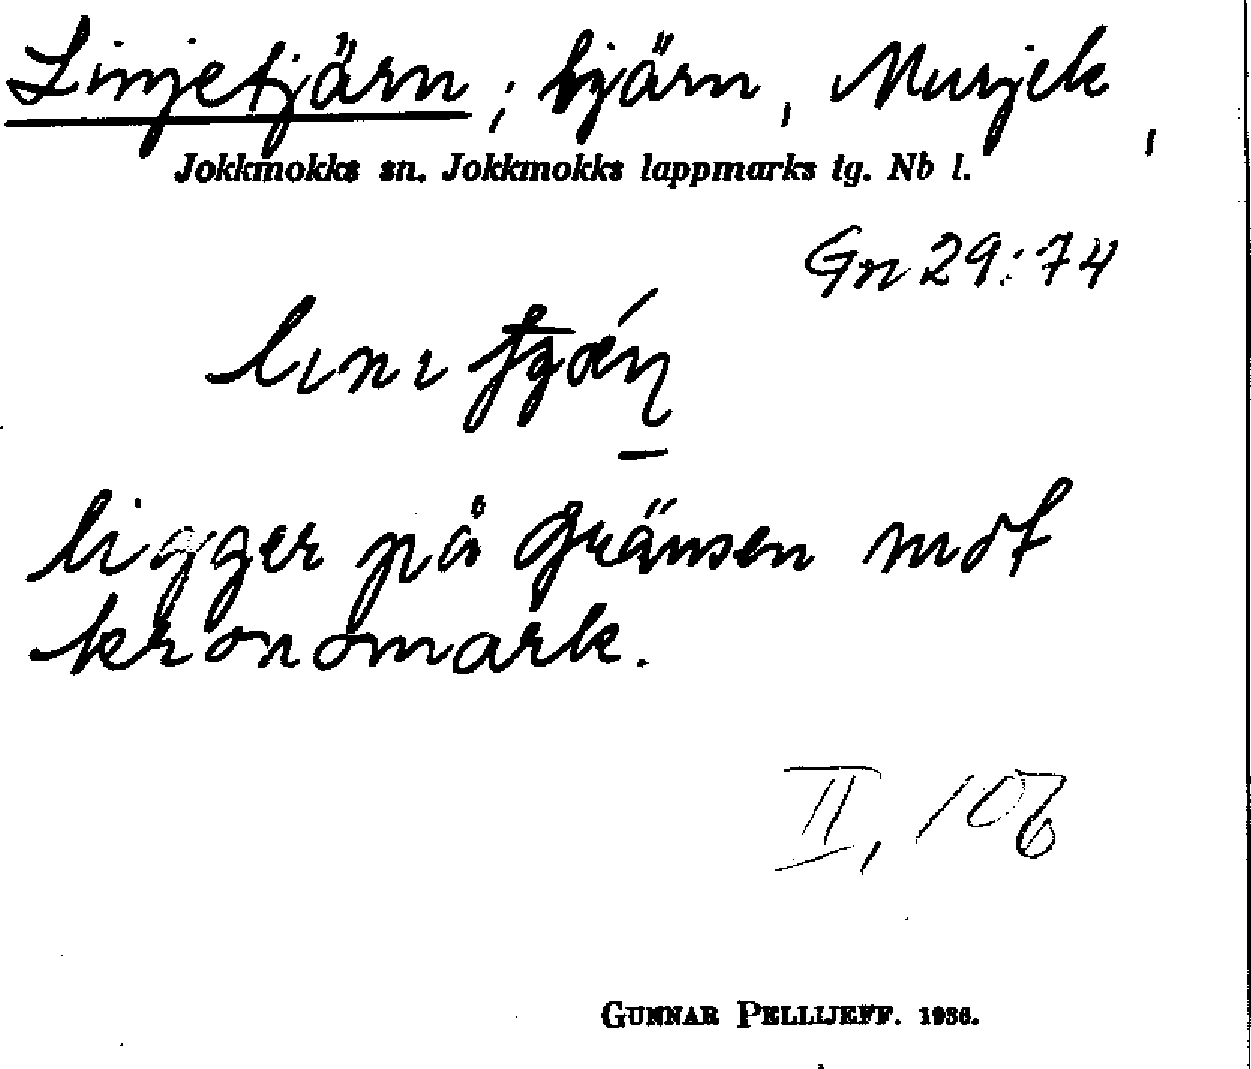 Linjetjärn; tjärn, Murjek,
Jokkmokks sn. Jokkmokks lappmarks tg. Nb l.
Gn 29:74
ligger på gränsen mot
kronomark.
II, 106
GUNNAR PELLIJEFF. 1936.